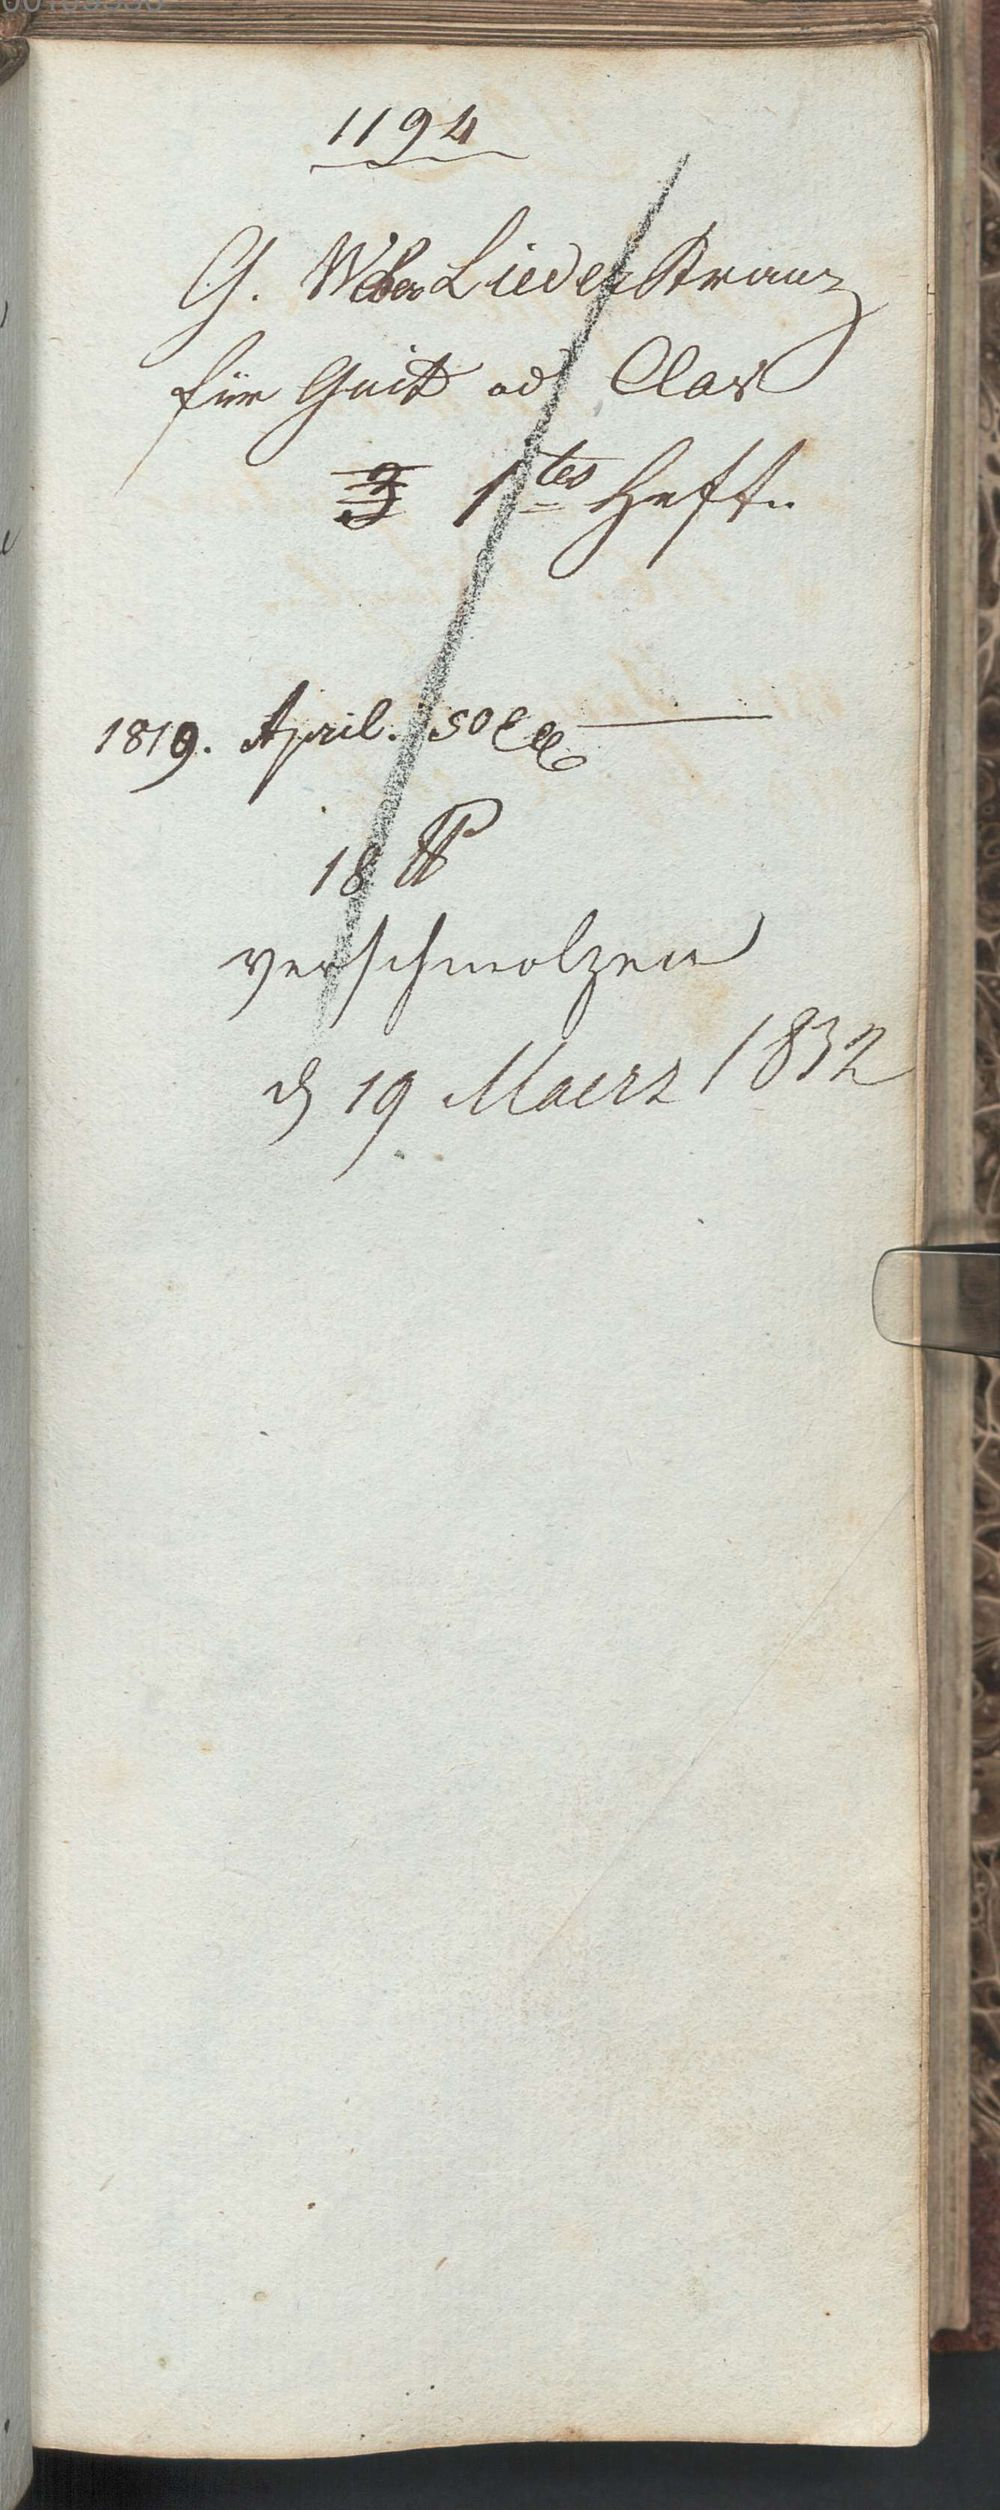 1194
G. Weber LiederKranz
für Guit od Clav
3 1tes Heft.
1819. April. 50 Ex
18 ℔
verschmolzen
d 19 Maerz 1832